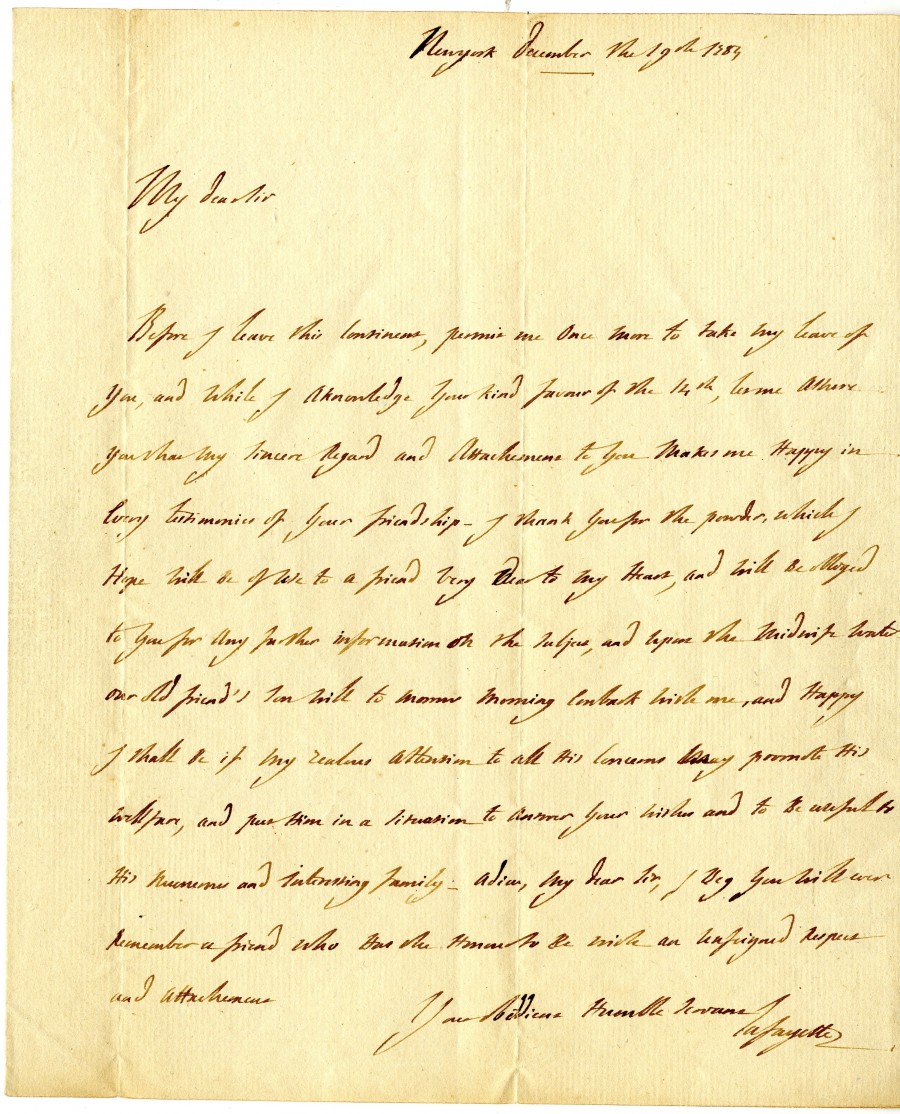 Newyork december the 19th 1784
My dear Sir
Before I leave this Continent, permit me Once More to take My leave of
You, and While I Aknowledge Your kind favour of the 14th, let me Assure
You that My Sincere Regard and Attachement to You Makes me Happy in
Every testimonies of Your friendship - I thank You for the powder, which I
Hope Will Be of Use to a friend Very Dear to My Heart, and Will Be obliged
to You for Any further information on the Subject, and Upon the Midwife Water
our old friend's Son Will to morrow Morning Embark with me, and Happy
I shall Be if My Zealous Attention to all His Concerns May promote His
wellfare, and put Him in a Situation to answer Your Wishes and to Be useful to
His Numerous and Interessing family - adieu, My dear Sir, I Beg You Will ever
Remember a friend who Has the Honor to Be with an Unfeigned Respect
and Attachement
Your obedient Humble Servant
Lafayette